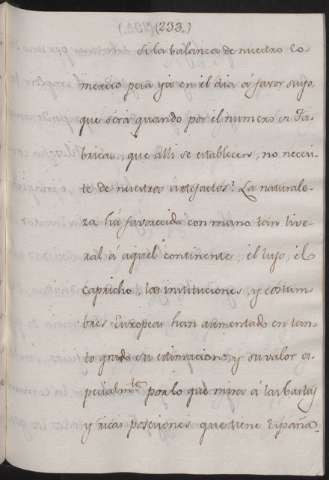 (233.)
Si la balanza de nuestro Co-
mercio pesa yá en el dia á favor suyo,
que será quando por el numero de Fa-
bricas, que alli se establecen, no necesi-
te de nuestros artefactos? La naturale-
za há favorecido con mano tan live-
ral á aquel continente, el lujo, el
capricho, las instituciones, y costum-
bres Europeas han aumentado en tan-
to grado su estimacion, y su valor es-
pecialmte. por lo que mira á las bastas
y ricas posesiones que tiene España